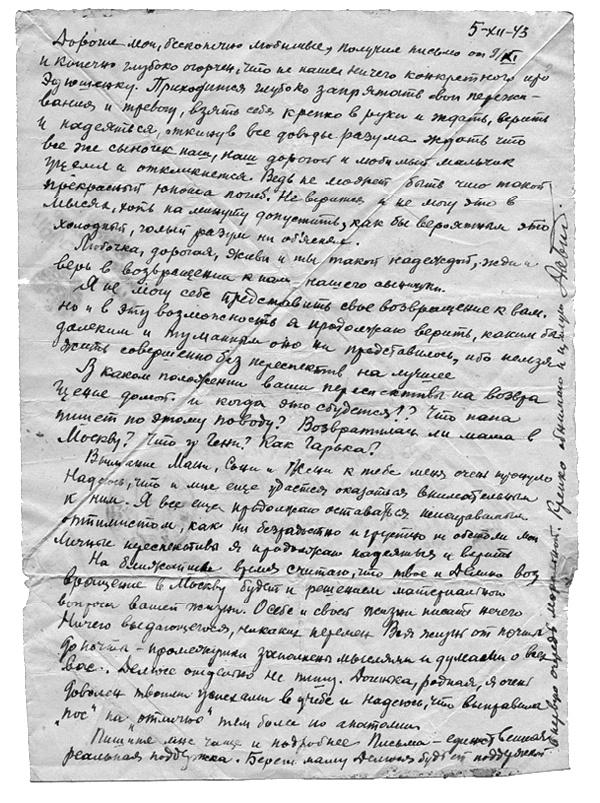 5-XII-43
Дорогие мои, бесконечно любимые, получил письмо от 9/XI
и конечно глубоко огорчен, что не нашел ничего конкретного про
Эдюшеньку. Приходится глубоко запрятать свои пережи-
вания и тревогу, взять себя крепко в руки и ждать, верить
и надеяться, откинув все доводы разума ждать что
все же сыночек наш, наш дорогой и любимый мальчик
уцелел и откликнется. Ведь не может быть чтоб такой
прекрасный юноша погиб. Не верится и не могу это в
мыслях, хоть на минуту допустить, как бы вероятным это
холодный, голый разум ни объяснял.
Любочка, дорогая, живи и ты такой надеждой, жди и
верь в возвращении к нам нашего сыночки.
Я не могу себе представить свое возвращение к вам,
но и в эту возможность я продолжаю верить, каким бы
далеким и туманным оно ни представлялось, ибо нельзя
жить совершенно без перспектив на лучшее
В каком положении ваши перспективы на возвра
щение домой и когда это сбудется?! Что папа
пишет по этому поводу? Возвратилась ли мама в
Москву? Что у Гени? Как Гарька?
Внимание Мани, Сони и Жени к тебе меня очень тронуло
Надеюсь, что и мне еще удастся оказаться внимательным
к ним. Я все еще продолжаю оставаться неисправимым
оптимистом, как ни безрадостно и грустно ни обстоят мои
личные перспективы я продолжаю надеяться и верить
На ближайшее время считаю, что твое и Делино воз
вращение в Москву будет и решением материального
вопроса вашей жизни. О себе и своей жизни писать нечего
Ничего выдающегося, никаких перемен Вся жизнь от почты
до почты - промежутки заполнены мыслями и думами о всех
вас. Делюсе отдельно не пишу. Доченька, родная, я очень
доволен твоими успехами в учебе и надеюсь, что выправила
"пос" на "отлично" тем более по анатомии
Пишите мне чаще и подробнее Письма - единственная
реальная поддержка. Береги маму Делюся будь ей поддержкой
в первую очередь моральной. Крепко обнимаю и целую